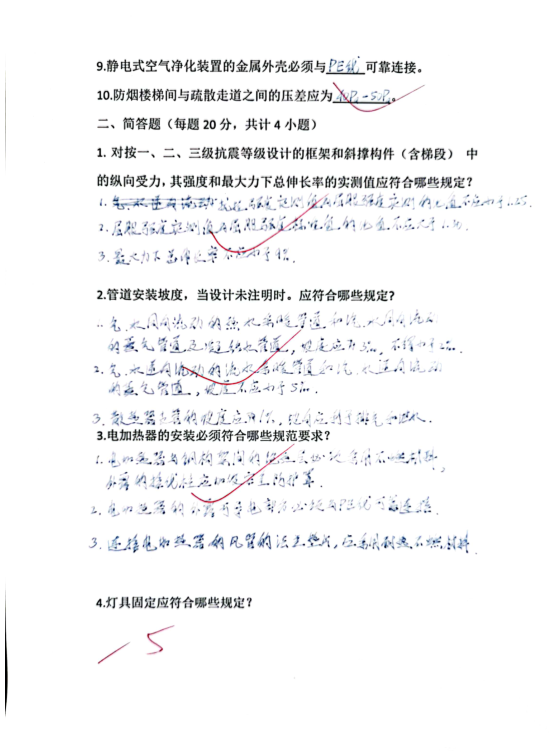 9.静电式空气净化装置的金属外壳必须与PE线可靠连接。
10.防烟楼梯间与疏散走道之间的压差应为40Pa-50Pa。
二、简答题（每题 20 分，共计 4 小题）
1. 对按一、二、三级抗震等级设计的框架和斜撑构件（含梯段） 中
的纵向受力，其强度和最大力下总伸长率的实测值应符合哪些规定？
1. 抗拉强度实测值与屈服强度实测值的比值不应小于1.25.
2. 屈服强度实测值与屈服强度标准值的比值不应大于1.30.
3. 最大力下总伸长率不应小于9%.
2.管道安装坡度，当设计未注明时。应符合哪些规定？
1. 气、水同向流动的热水采暖管道和汽、水同向流动
的蒸气管道及凝结水管道，坡度应为3‰，不得小于2‰.
2. 气、水逆向流动的热水采暖管道和汽、水逆向流动
的蒸气管道，坡度不应小于5‰.
3. 散热器支管的坡度应为1%，坡向应利于排气和泄水.
3.电加热器的安装必须符合哪些规范要求？
1. 电加热器与钢构架间的绝热层必须采用不燃材料，
外露的接线柱应加设安全防护罩.
2. 电加热器的外露可导电部分必须与PE线可靠连接.
3. 连接电加热器的风管的法兰垫片，应采用耐热不燃材料.
4.灯具固定应符合哪些规定？
-15